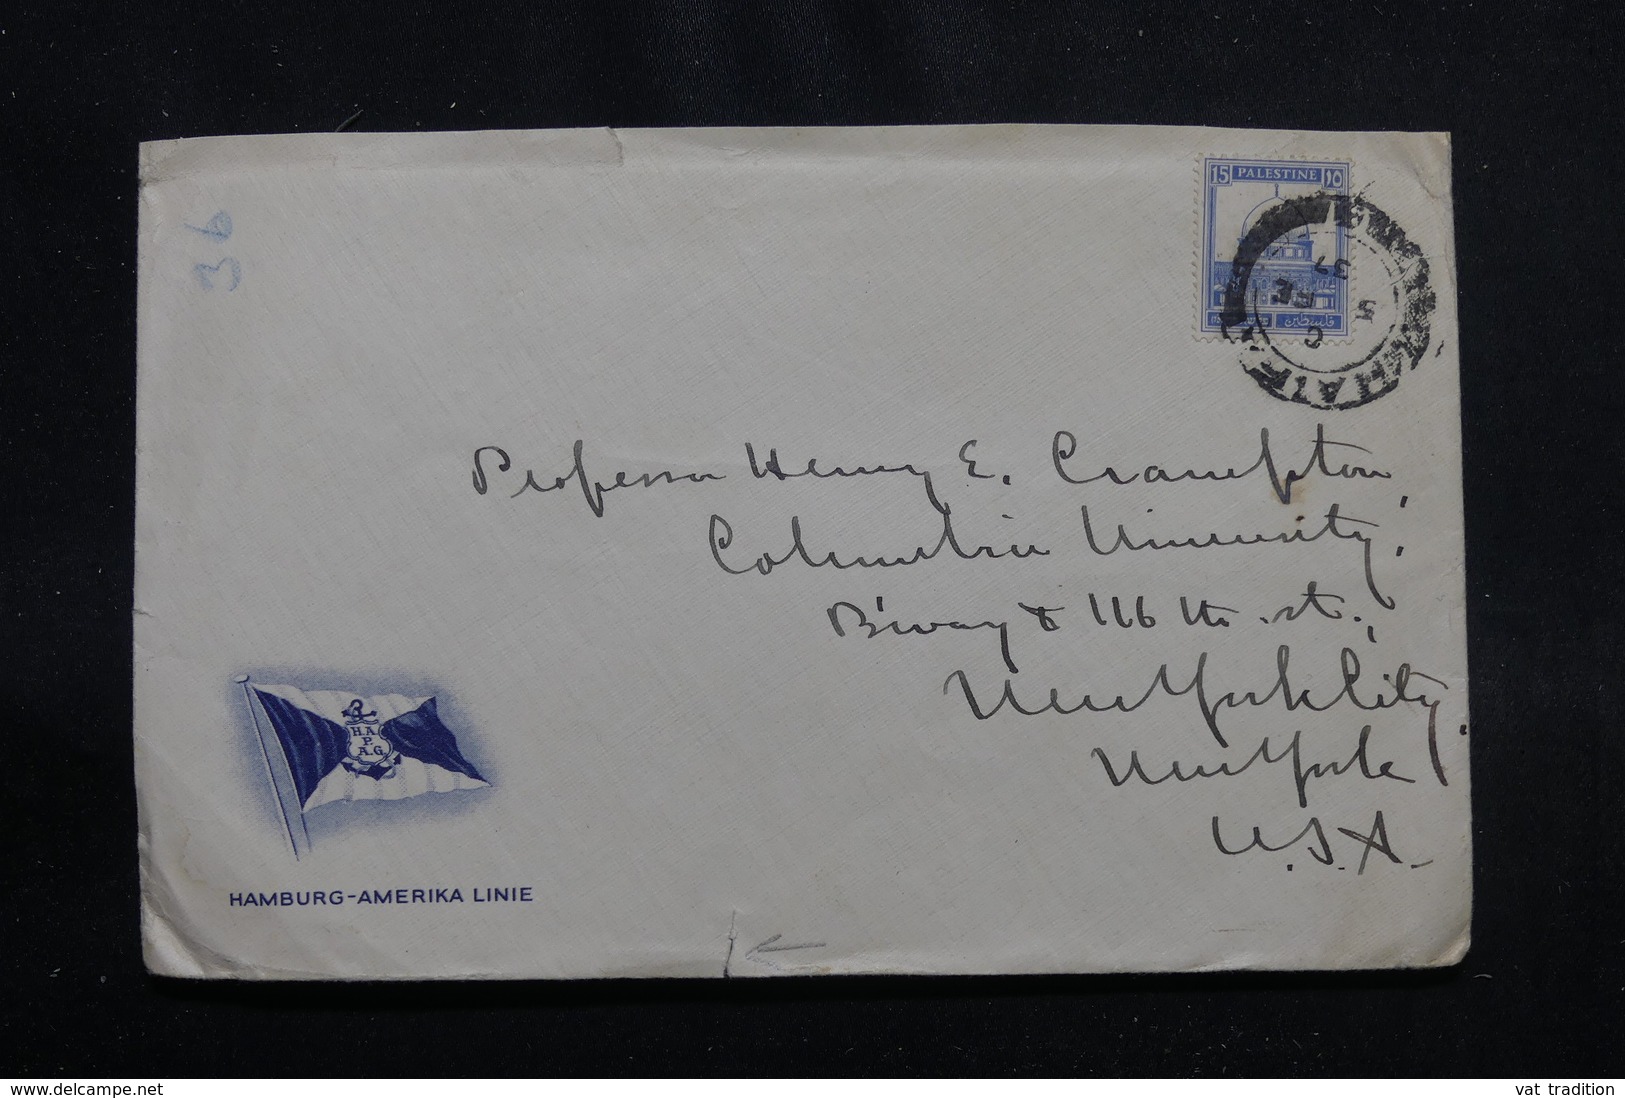 36
15 PALESTINE ١٥
فلسطين
HAIFA
C
5 FE
37
Professor Henry E. Crampton,
Columbia University,
B'way & 116 th. st.,
New York City,
New York
U.S.A.
H.A.
P.
A.G.
HAMBURG-AMERIKA LINIE
www.delcampe.net
vat tradition